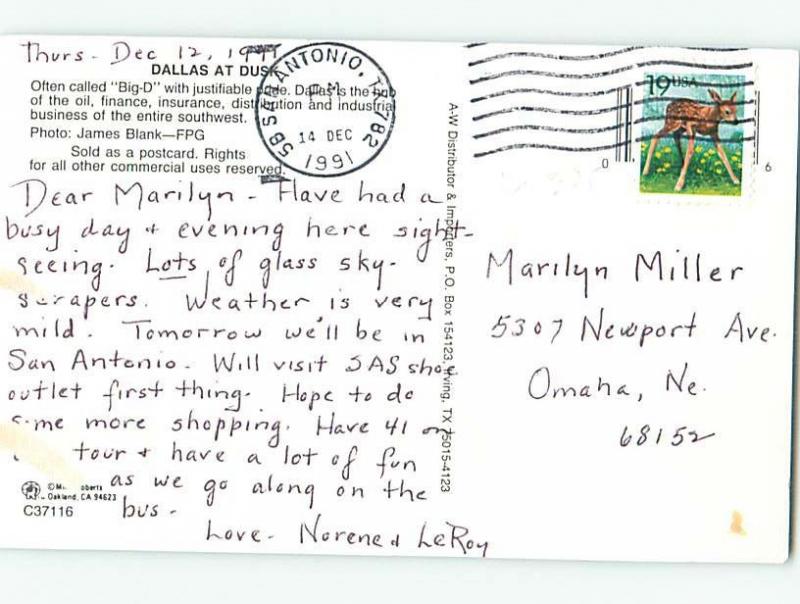 Thurs. Dec 12, 1991
DALLAS AT DUSK
Often called "Big-D" with justifiable pride. Dallas is the hub
of the oil, finance, insurance, distribution and industrial
business of the entire southwest.
Photo: James Blank—FPG
Sold as a postcard. Rights
for all other commercial uses reserved.
SAN ANTONIO, TX 782
14 DEC
1991
19 USA
0
6
Dear Marilyn - Have had a
busy day + evening here sight-
seeing. Lots of glass sky-
scrapers. Weather is very
mild. Tomorrow we'll be in
San Antonio. Will visit SAS shoe
outlet first thing. Hope to do
some more shopping. Have 41 on
tour + have a lot of fun
as we go along on the
bus.
Love - Norene + LeRoy
Oakland, CA 94623
C37116
A-W Distributor & Importers, P.O. Box 154123, Irving, TX 75015-4123
Marilyn Miller
5307 Newport Ave.
Omaha, Ne.
68152